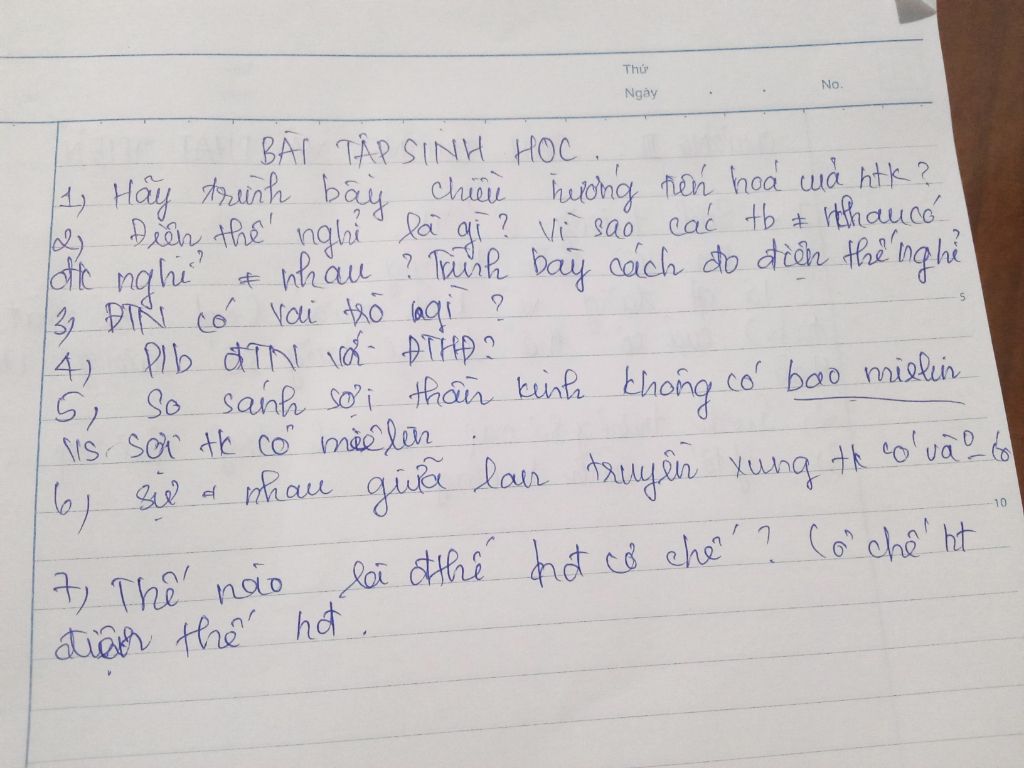 Thứ
Ngày . . No.
BÀI TẬP SINH HỌC.
1, Hãy trình bày chiều hướng tiến hoá của htk?
2, Điện thế nghỉ là gì? Vì sao các tb ≠ nhau có
đtk nghỉ ≠ nhau? Trình bày cách đo điện thế nghỉ
3, ĐTN có vai trò gì?
4, P/b ĐTN và ĐTHĐ?
5, So sánh sợi thần kinh không có bao mielin
5
VS sợi tk có miêlin.
6, Sự ≠ nhau giữa lan truyền xung tk có và 0 có
10
7, Thế nào là đthế hđ cơ chế? Cơ chế ht
điện thế hđ.